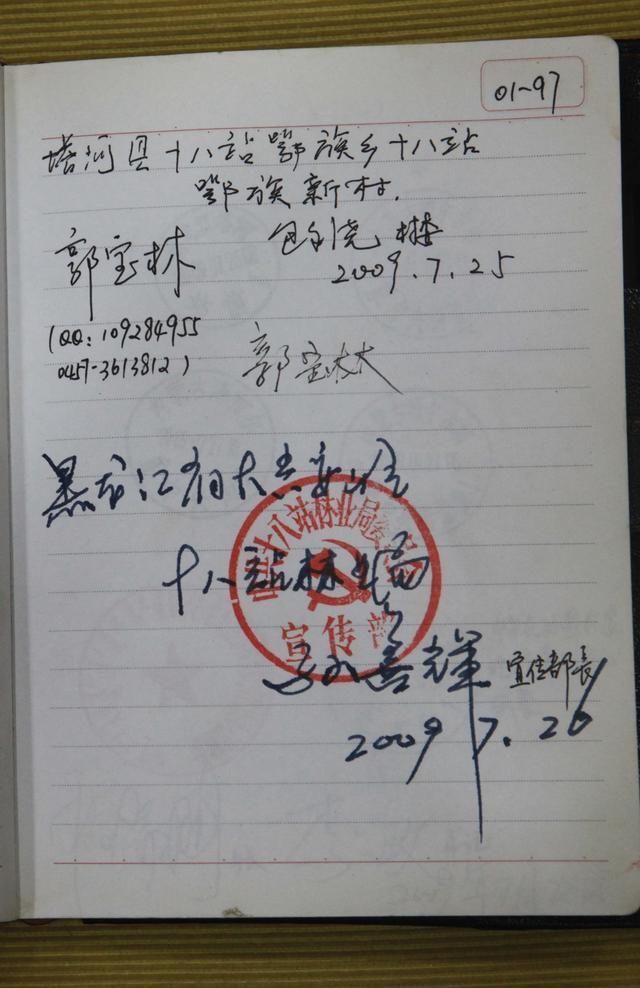 01~97
塔河县十八站鄂族乡十八站
鄂族新村.
郭宝林
2009.7.25
(QQ:109284955
0457-3613812)
郭宝林
黑龙江省大兴安岭
十八站林业局
中共十八站林业局委员会
宣传部
孙喜辉 宣传部长
2009.7.26